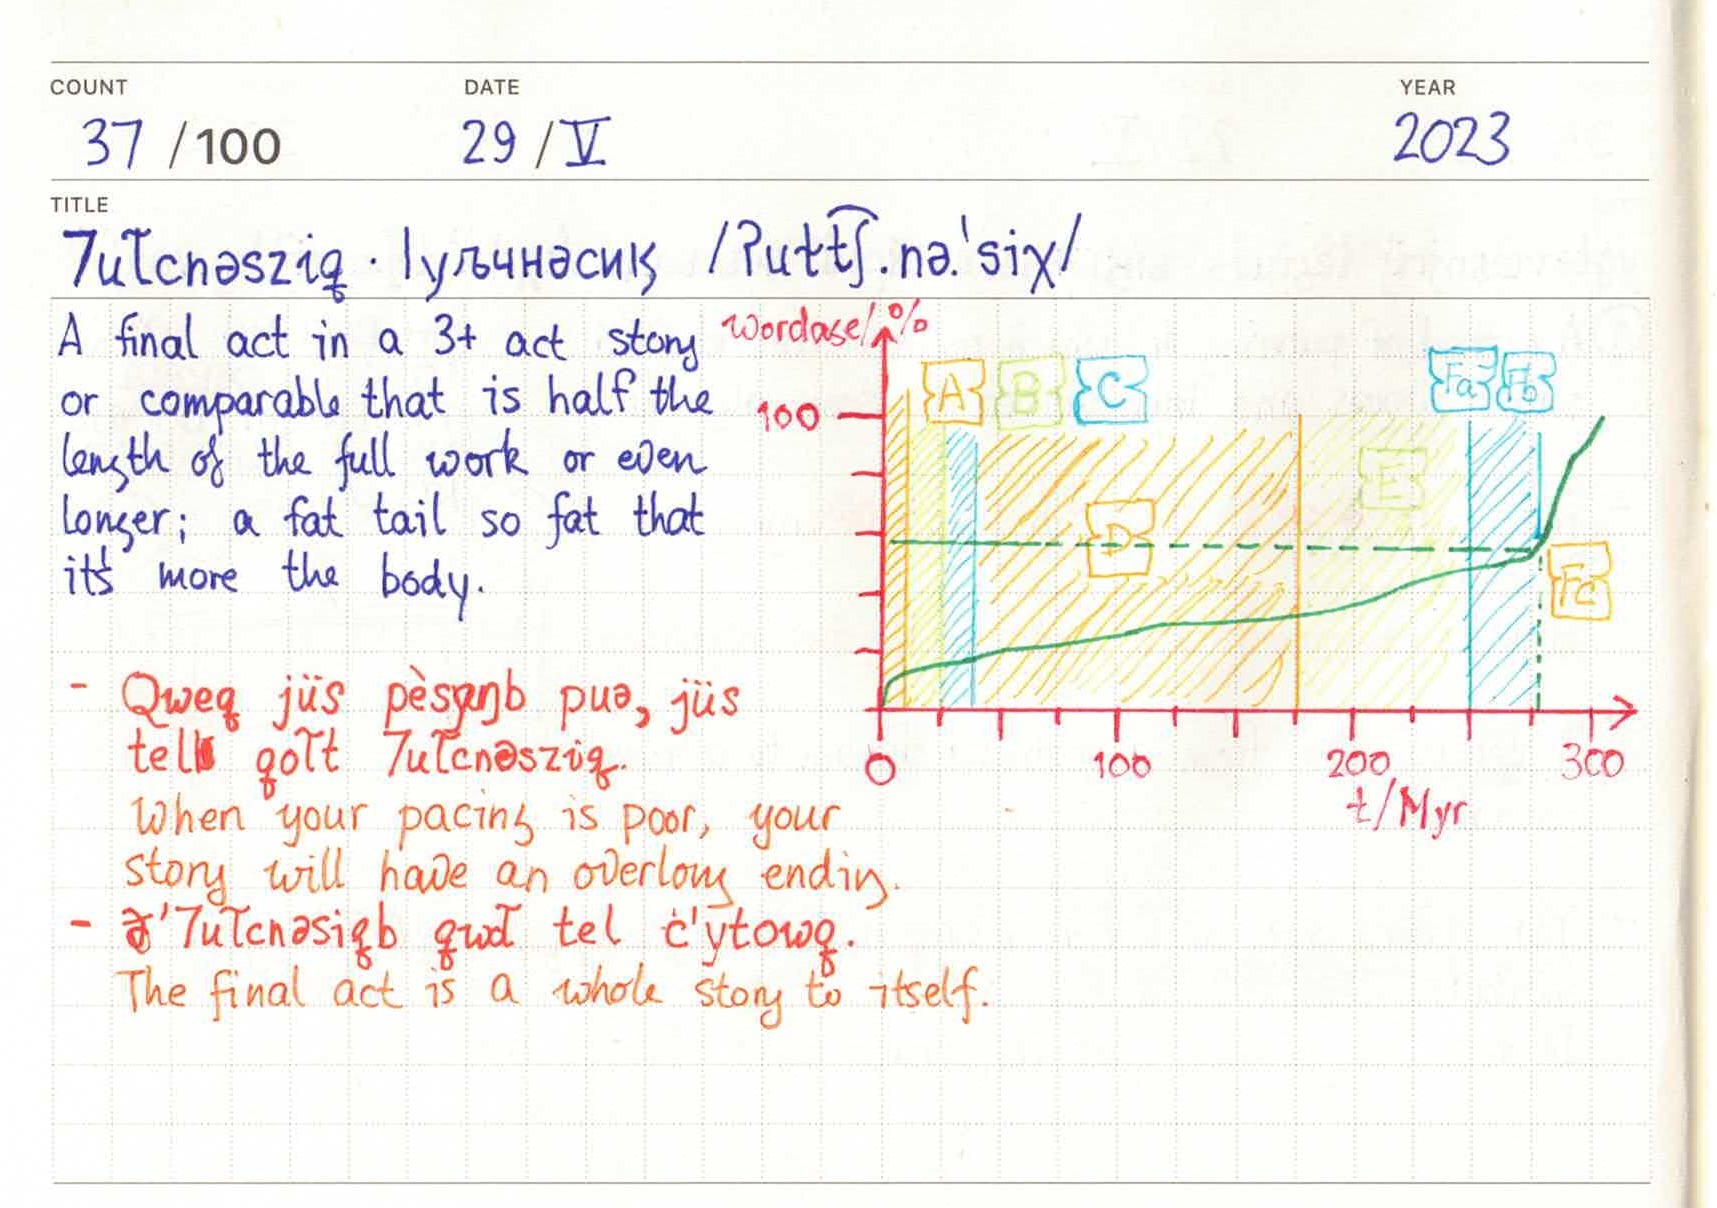 COUNT DATE YEAR
37 /100 29 / V 2023
TITLE
7uȽcnəsziq · Ӏуљчнəсиқ /ʔutt͡ʃ.nə.ˈsiχ/
A final act in a 3+ act story
or comparable that is half the
length of the full work or even
longer; a fat tail so fat that
it's more the body.
wordage/%
A B C Fa Fb
100
E
D
Fc
0 100 200 300
t/Myr
- Qweq jüs puə, jüs
qoȽt 7uȽcnəsziq.
When your pacing is poor, your
story will have an overlong ending.
- 7uȽcnəsiqb tel ċ'ÿtowq.
The final act is a whole story to itself.